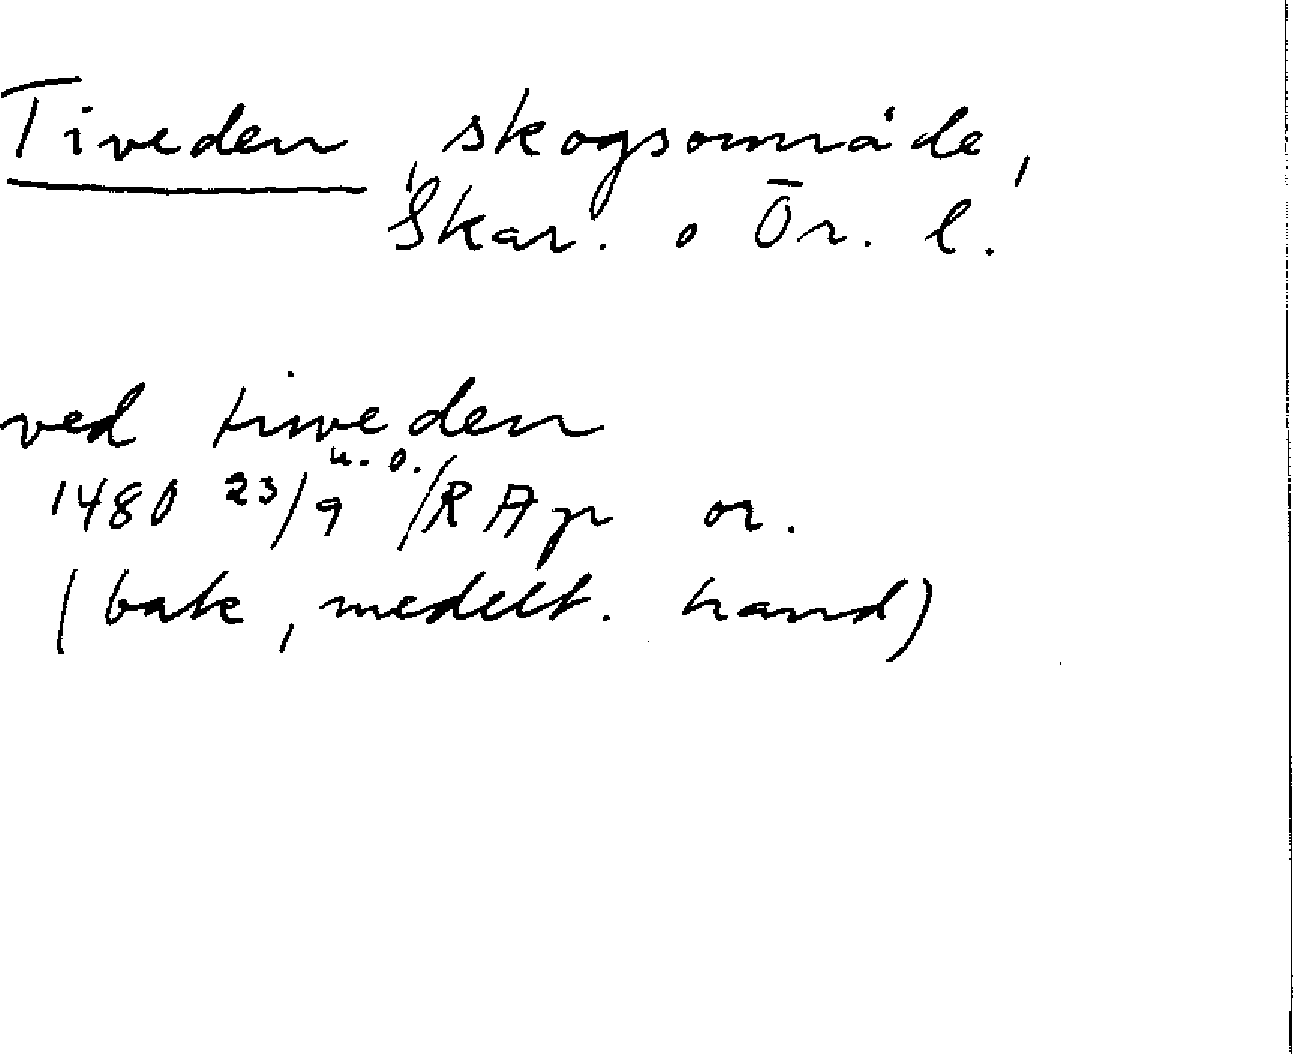 Tiveden, skogsområde,
Skar. o Ör. l.
ved tiweden
u. o.
1480 23/9 /RAp or.
(bak, medelt. hand)